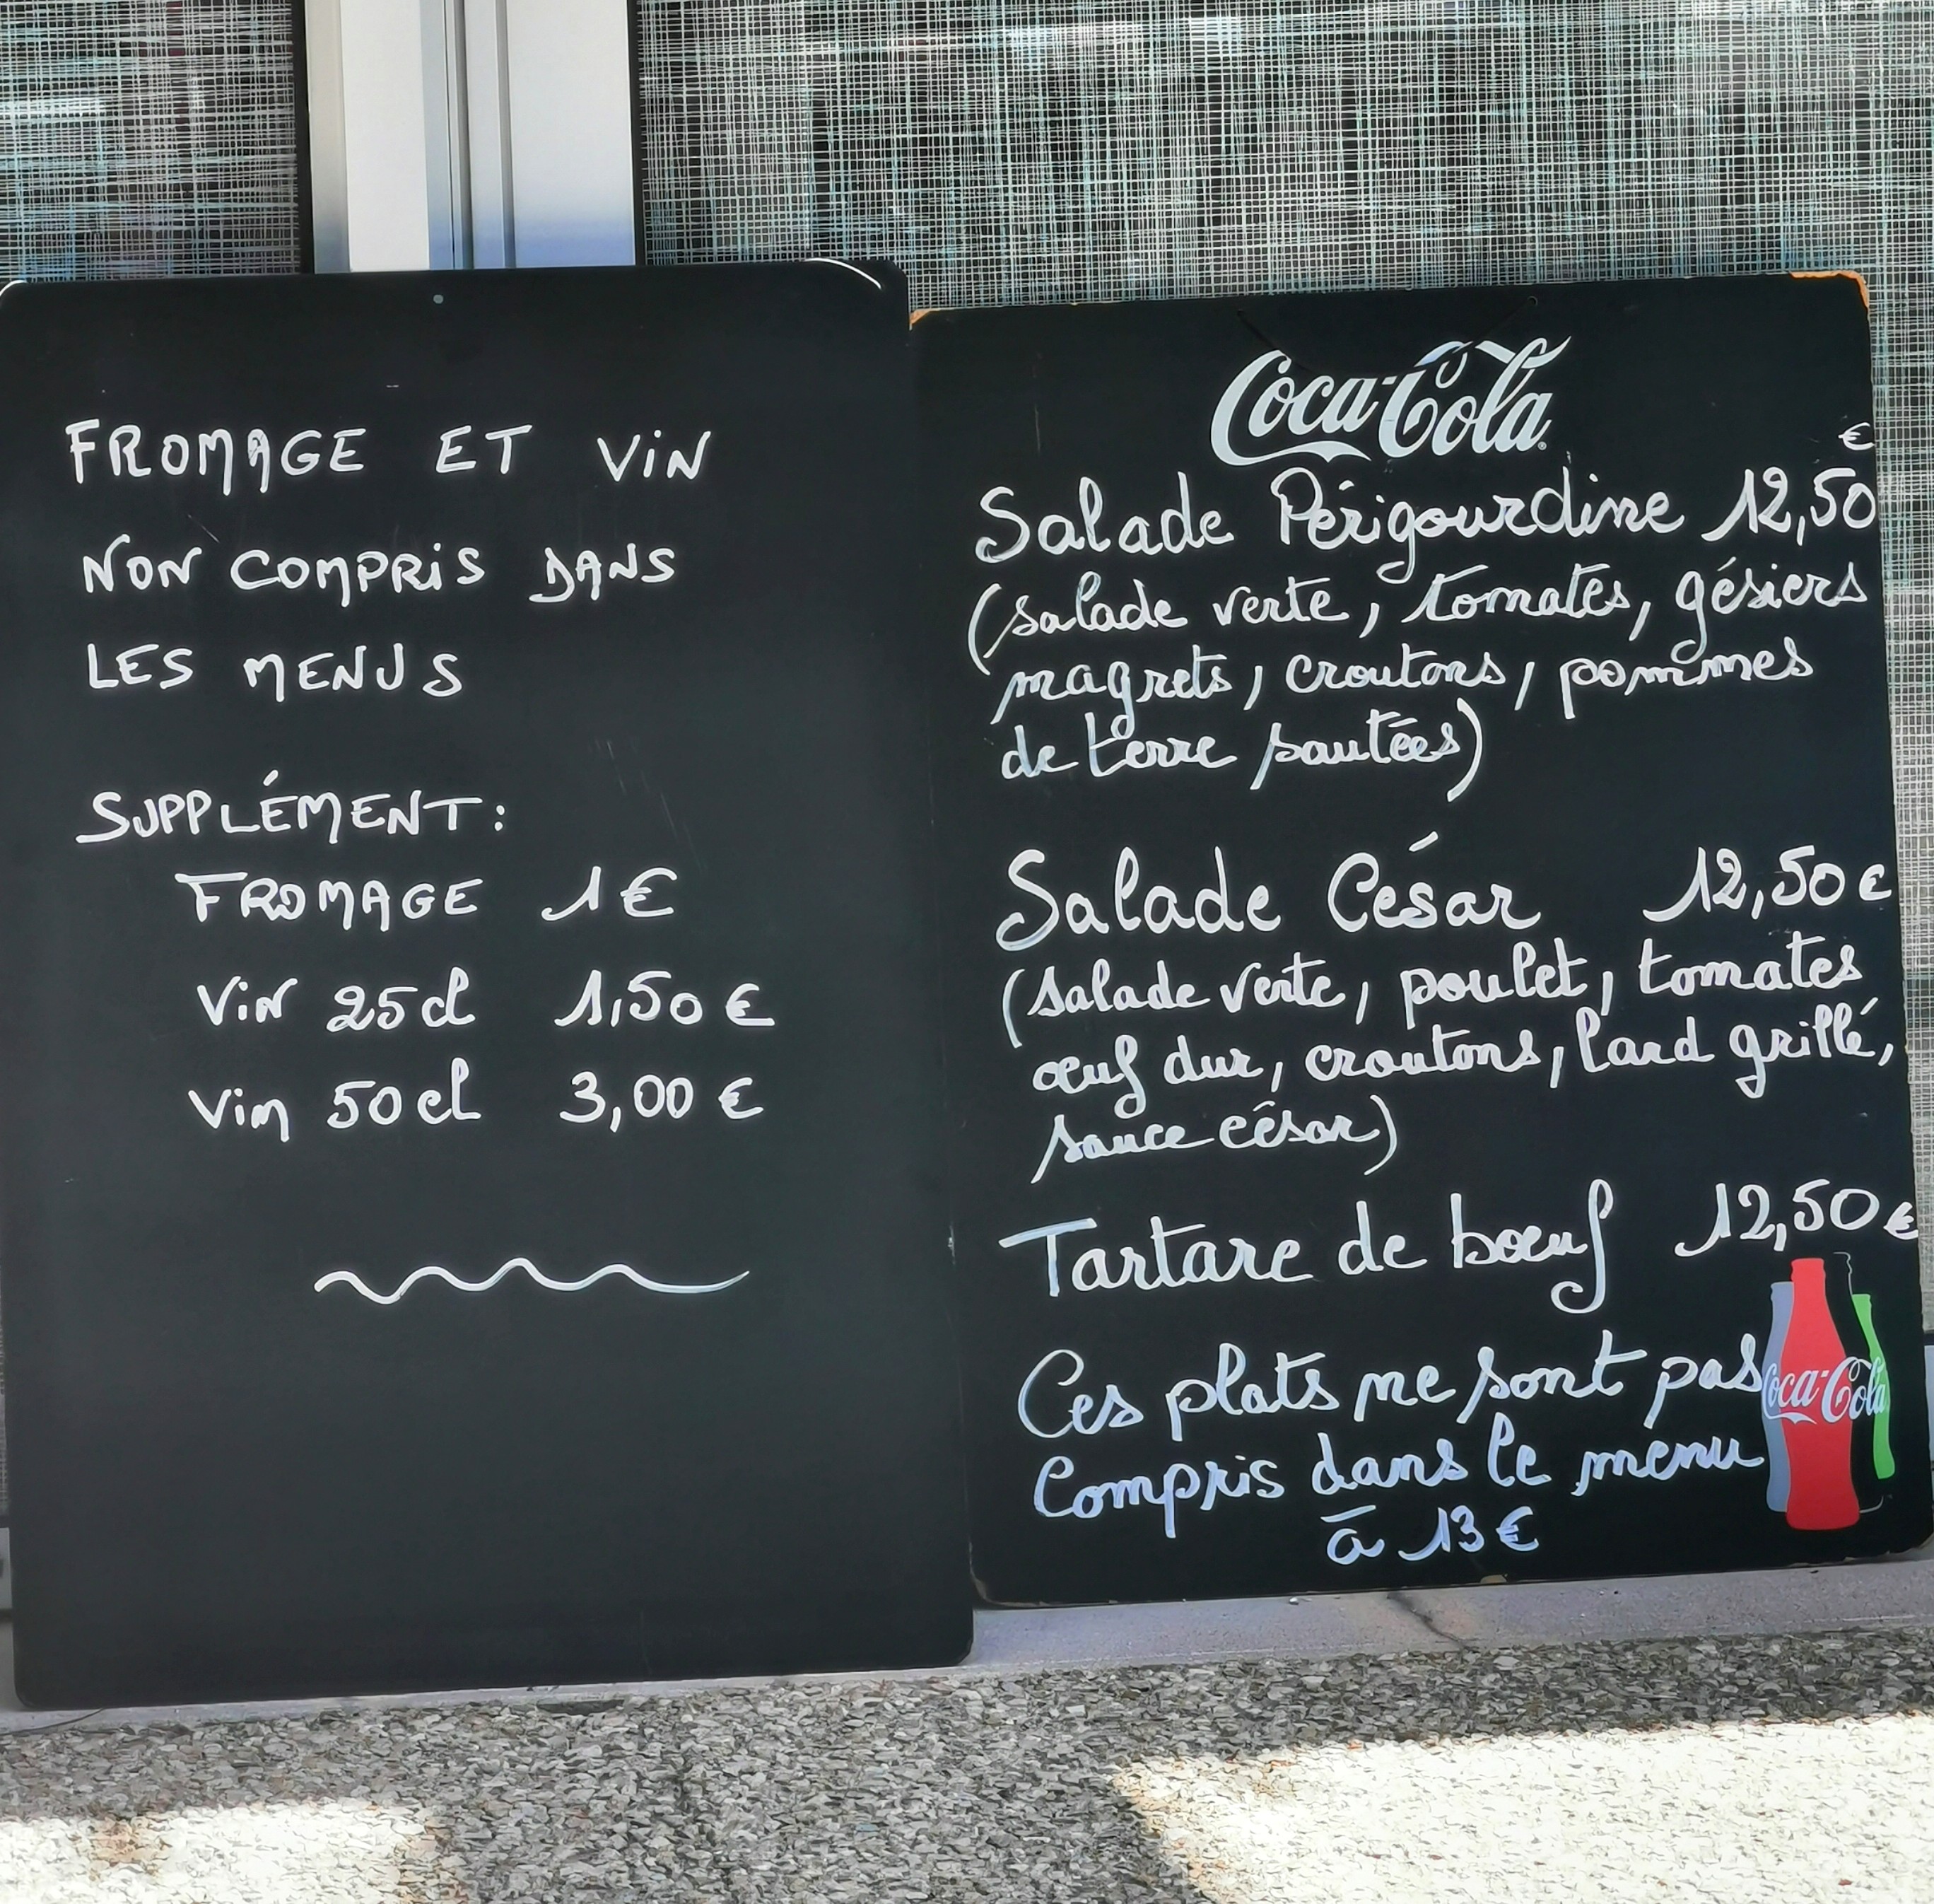 FROMAGE ET ViN
NON COMPRiS DANS
LES MENUS
SUPPLÉMENT:
FROMAGE 1€
ViN 25cl 1,50 €
Vin 50cl 3,00 €
Coca-Cola
€
Salade Périgourdine 12,50
(salade verte, tomates, gésiers
magrets, croutons, pommes
de terre sautées)
Salade César 12,50 €
(salade verte, poulet, tomates
œuf dur, croutons, lard grillé,
sauce césar)
Tartare de bœuf 12,50 €
Ces plats ne sont pas
Compris dans le menu
à 13 €
Coca-Cola